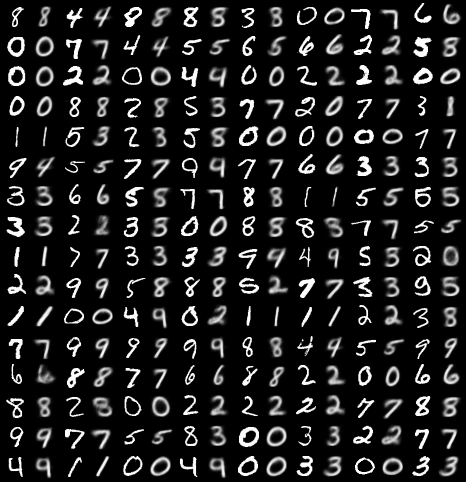 8 8 4 4 8 8 8 8 3 3 0 0 7 7 6 6
0 0 7 7 4 4 5 5 6 5 6 6 2 2 5 8
0 0 2 2 0 0 4 4 0 0 2 2 2 2 0 0
0 0 8 8 2 8 5 3 7 7 2 0 7 7 3 1
1 1 5 3 2 3 5 8 0 0 0 0 0 0 7 7
9 4 5 5 7 7 9 9 7 7 6 6 3 3 3 3
3 3 6 6 5 8 7 7 8 8 1 1 5 5 5 5
3 3 2 2 3 3 0 0 8 8 8 8 7 7 5 5
1 1 7 7 3 3 3 3 9 9 4 9 5 3 2 0
2 2 9 9 5 8 8 8 5 2 7 7 3 3 9 5
1 1 0 0 4 9 0 2 1 1 1 1 2 2 3 8
7 7 9 9 9 9 9 9 8 8 4 4 5 5 9 9
6 6 8 8 7 7 6 6 8 8 2 2 0 0 6 6
8 8 2 8 0 0 2 2 2 2 2 2 7 7 8 8
9 9 7 7 5 5 8 3 0 0 3 3 2 2 7 7
4 9 1 1 0 0 4 9 0 0 3 3 0 0 3 3